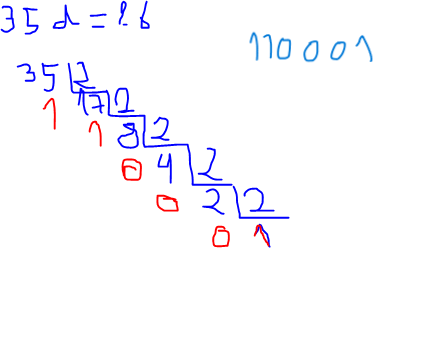 35 d = ? b
110001
35 2
1 17 2
1 8 2
0 4 2
0 2 2
0 1